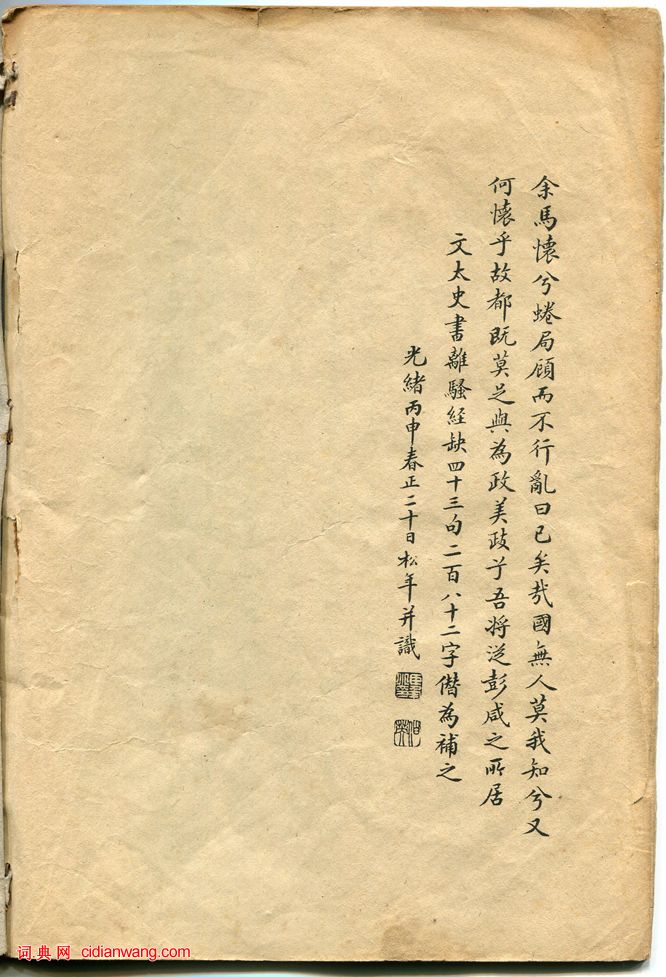 余馬懷兮蜷局顧而不行亂曰已矣哉國無人莫我知兮又
何懷乎故都既莫足與為政美政兮吾將從彭咸之所居
文太史書離騷經缺四十三句二百八十二字僭為補之
光緒丙申春正二十日松年并識
词典网 cidianwang.com